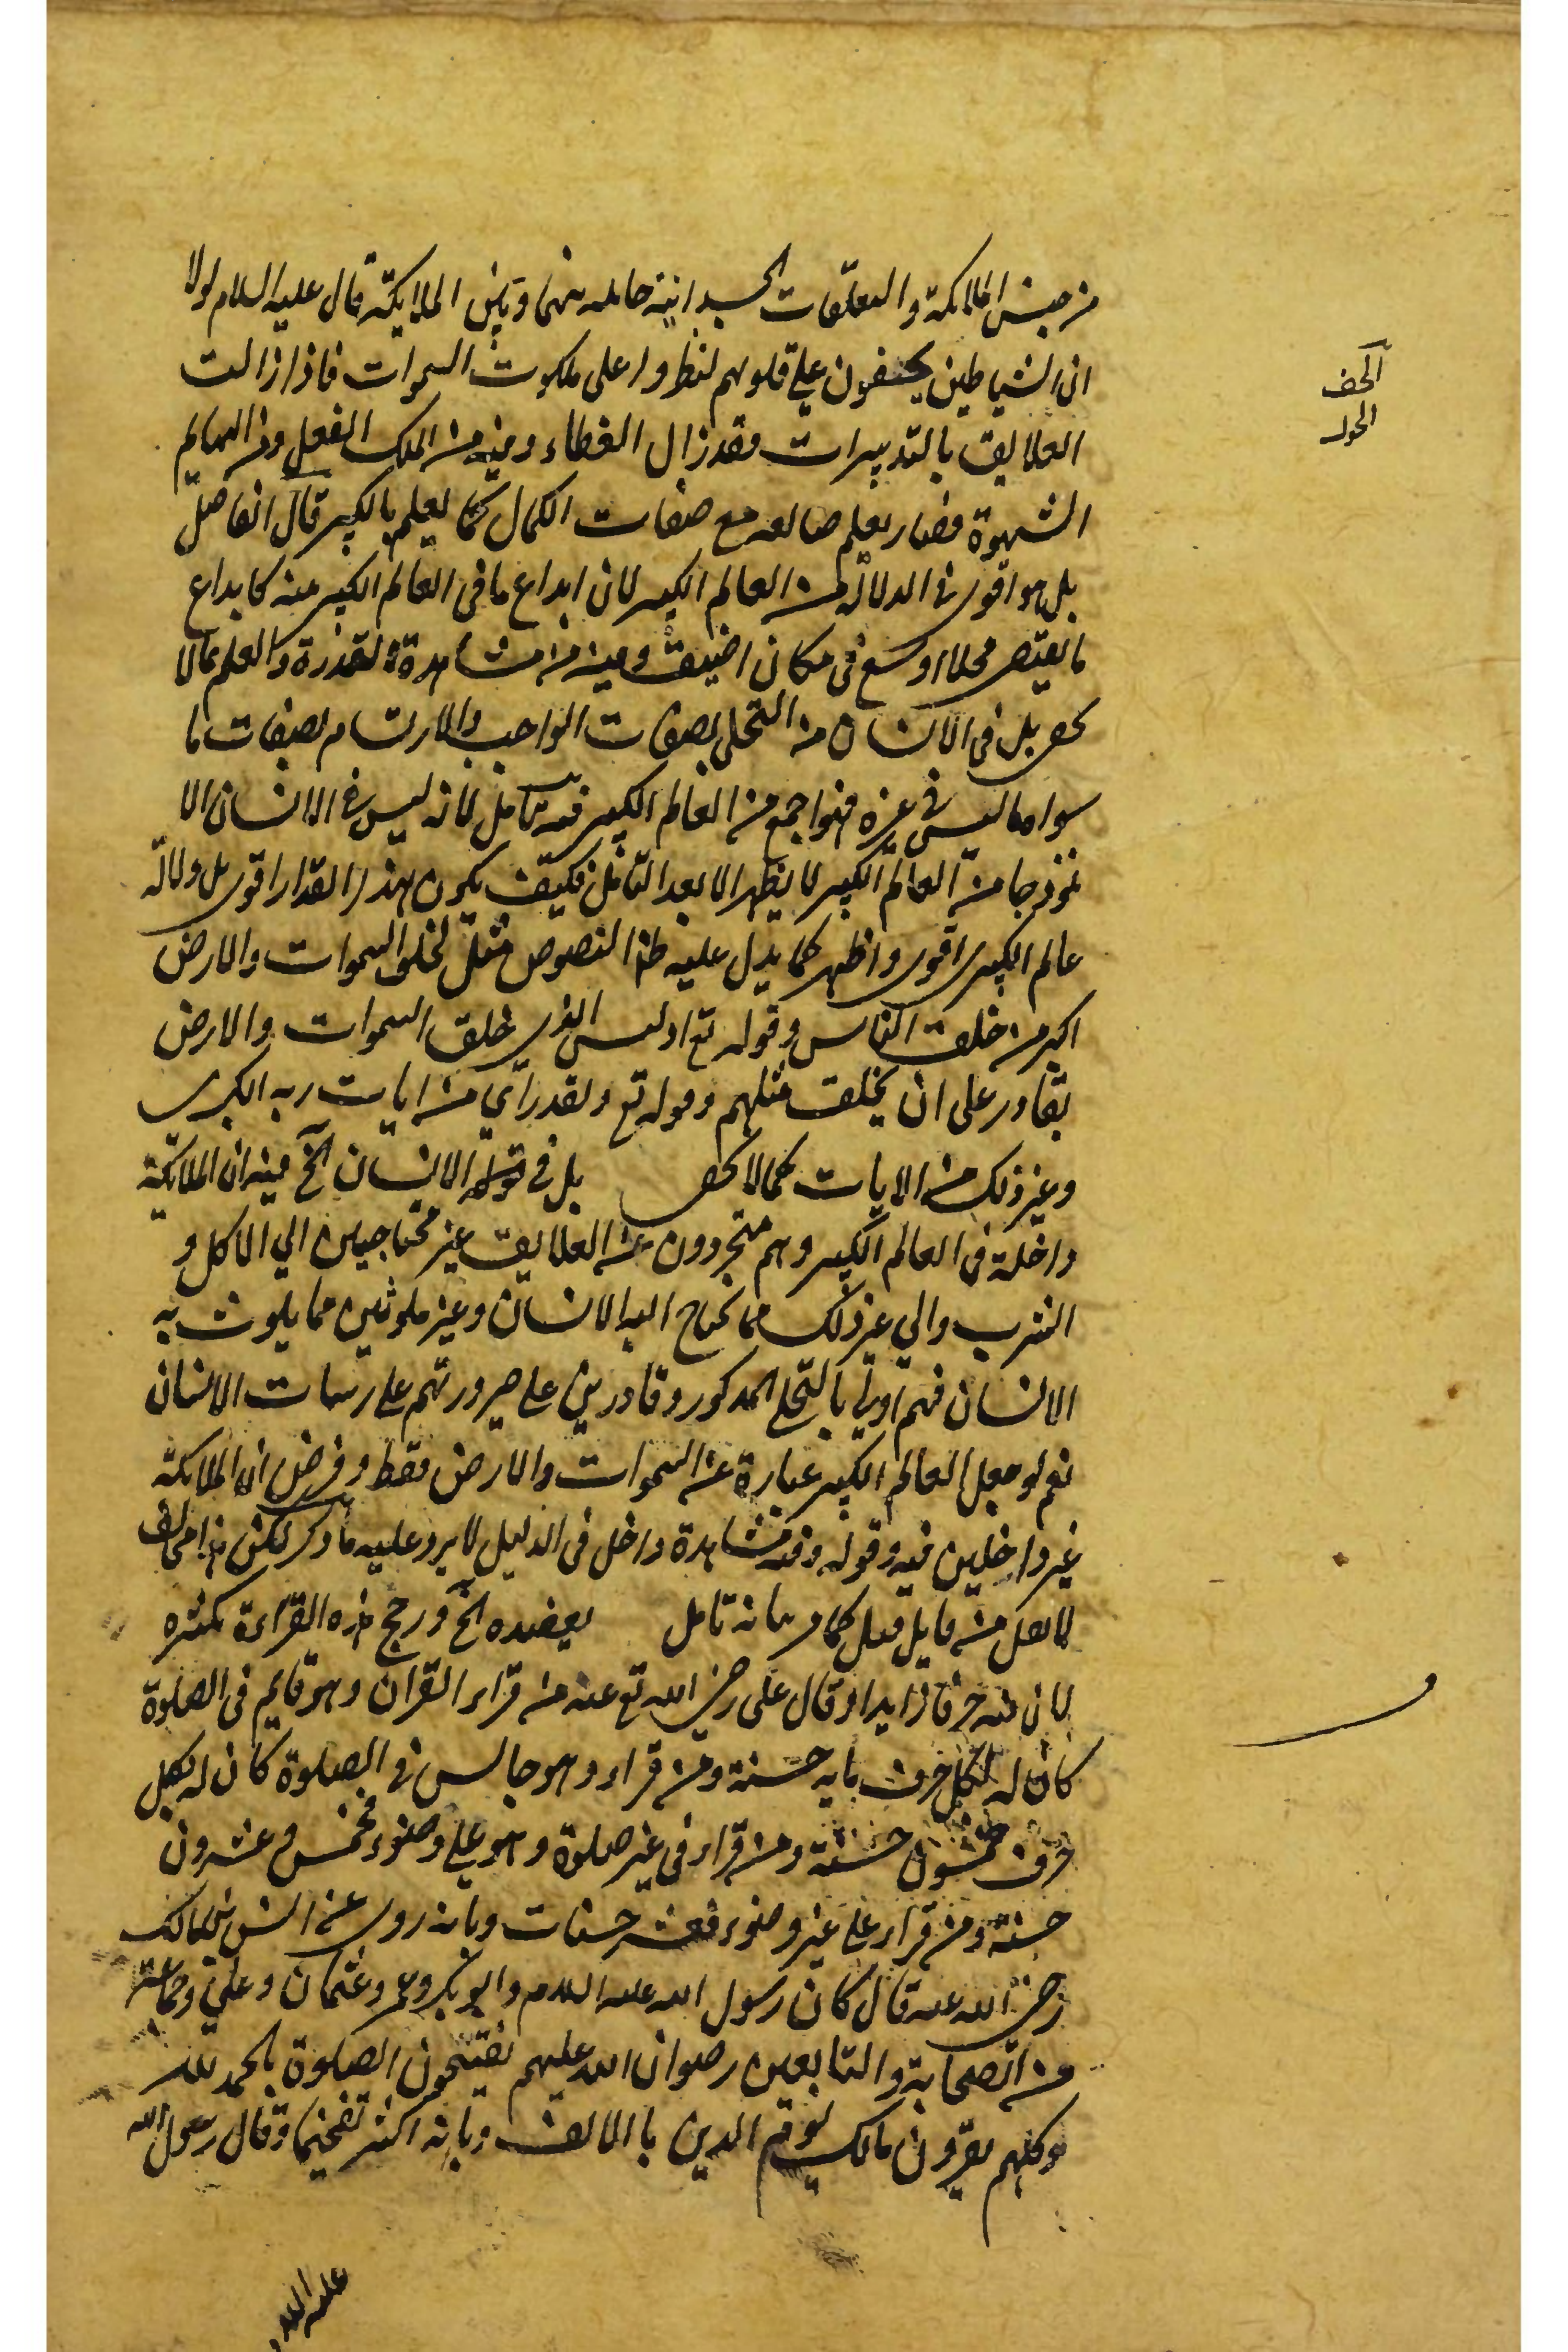 من جنس الملائكة والتعلقات الجسدانية حائلة بينهما وبين الملايكة قال عليه السلام لولا
ان الشياطين يحتفون على قلوبهم لنظروا على ملكوت السموات فاذا زالت
العلايق بالتدبيرات فقد زال الغطاء وفيه من الملك العقل ومن البهايم
الشهوة فصار يعلم صانعه مع صفات الكمال كما يعلم بالكبير قال الفاضل
بل هو اقوى في الدلالة من العالم الكبير لان ابداع ما في العالم الكبير منه كابداع
ما يقتضى محلا اوسع فى مكان اضيق وفيه من مشاهدة القدرة والعلم ما لا
يخفى بل فى الانسان من التحلى بصفات الواجب والارتسام بصفات ما
سواه ما ليس في غيره فهو اجمع من العالم الكبير فيه تأمل لانه ليس فى الانسان الا
نموذجا من العالم الكبير لا يظهر الا بعد التأمل فكيف يكون بهذا القدار اقوى بل دلالة
عالم الكبير اقوى واظهر كما يدل عليه النصوص مثل لخلق السموات والارض
اكبر من خلق الناس وقوله تع اوليس الذى خلق السموات والارض
بقادر على ان يخلق مثلهم وقوله تع ولقد رآي من ايات ربه الكبرى
وغير ذلك من الايات كما لا يخفى بل في قوله الانسان الخ فيه ان الملائكة
داخلة فى العالم الكبير وهم متجردون عن العلايق غير محتاجين الي الاكل و
الشرب والي غير ذلك مما يحتاج اليه الانسان وغير ملوثين مما يلوث به
الانسان فهم اولى بالتحلى المذكور وقادرين على صيرورتهم على رسمات الانسان
نعم لو جعل العالم الكبير عبارة عن السموات والارض فقط وفرض ان الملائكة
غير داخلين فيه وقوله وفيه مشاهدة داخل فى الدليل لا يرد عليه ما ذكر لكن هذا مخالف
لا يعقل من قايل قيل كما مر بيانه تامل يعضده الخ ورجح هذه القراءة بكثره
لان فيه حرفا زايدا وقال على رضى الله تع عنه من قراء القران وهو قايم فى الصلوة
كان له لكل حرف مايه حسنة ومن قراء وهو جالس فى الصلوة كان له بكل
حرف خمسون حسنة ومن قراء فى غير صلوة وهو على وضوء فخمس وعشرون
حسنة ومن قراء على غير وضوء فعشر حسنات وبانه روى عن انس بن مالك
رضى الله عنه قال كان رسول الله عليه السلام وابو بكر وعمر وعثمان وعلي وجماعة
من الصحابة والتابعين رضوان الله عليهم يفتتحون الصلوة بالحمد لله
وكلهم يقرؤن مالك يوم الدين بالالف وبانه اكثر تفخيما وقال رسول الله
عليه السلام
الحف
الحول